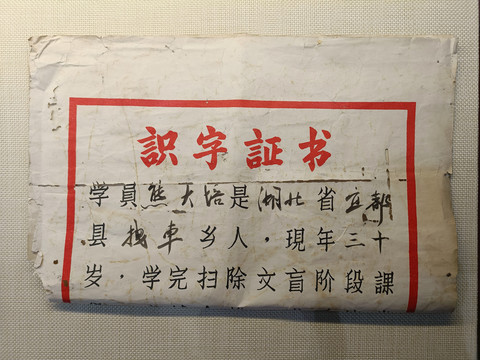 識字証书
学員熊大浩是湖北省宜都
县栈車乡人·現年三十
岁·学完扫除文盲阶段課